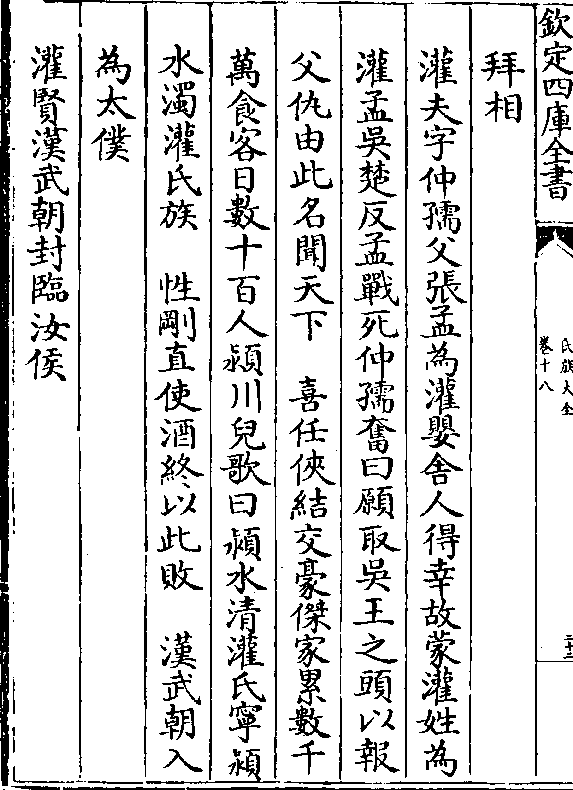 欽定四庫全書
氏族大全
卷十八
二十二
拜相
灌夫字仲孺父張孟為灌嬰舍人得幸故蒙灌姓為
灌孟吳楚反孟戰死仲孺奮曰願取吳王之頭以報
父仇由此名聞天下　喜任俠結交豪傑家累數千
萬食客日數十百人潁川兒歌曰潁水清灌氏寧潁
水濁灌氏族　性剛直使酒終以此敗　漢武朝入
為太僕
灌賢漢武朝封臨汝侯